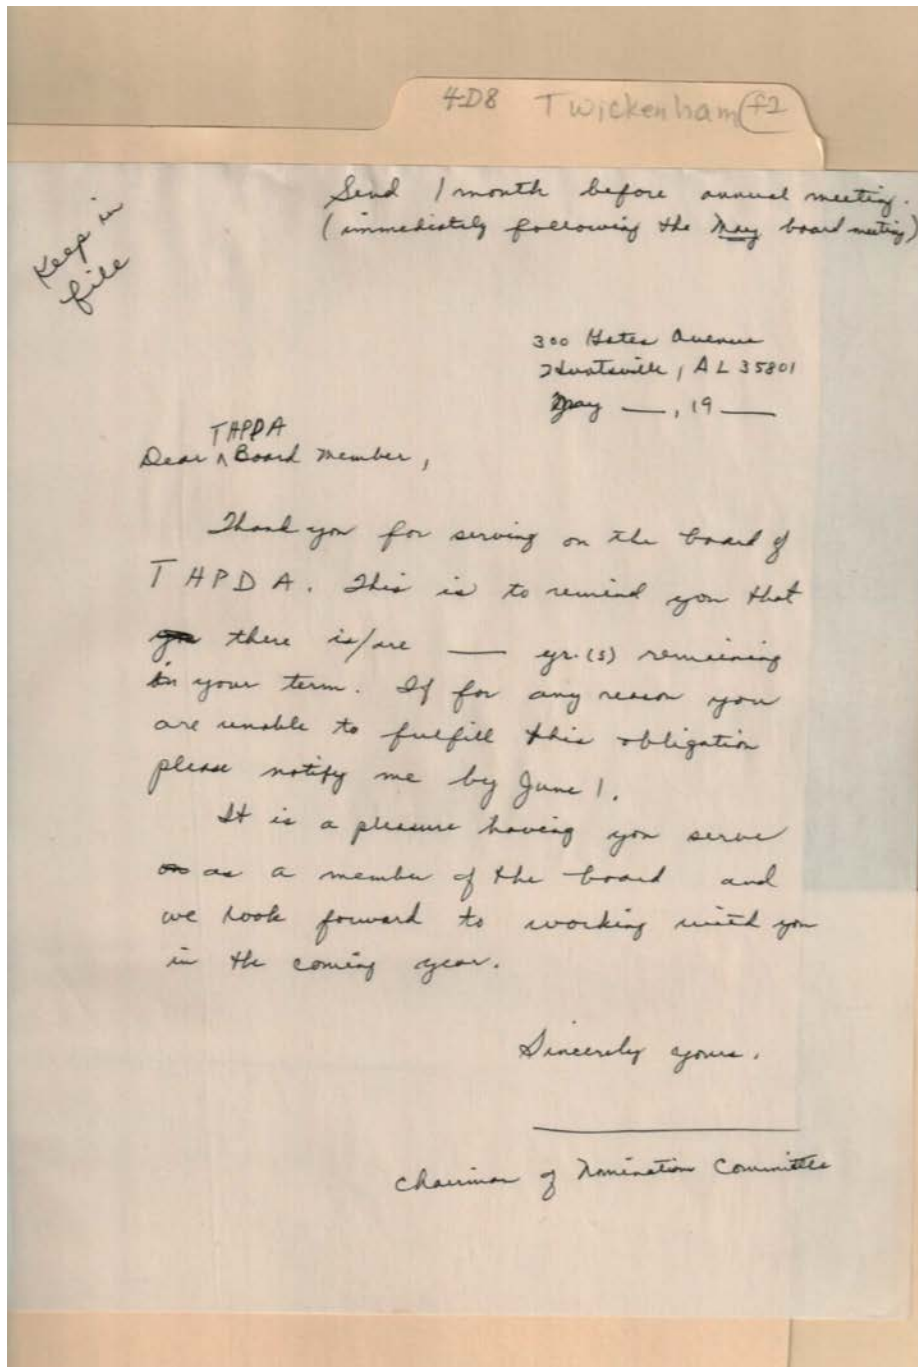 4-D8 Twickenham f2
Send 1 month before annual meeting.
(immediately following the May board meeting)
Keep in
file
300 Gates Avenue
Huntsville, AL 35801
May __, 19 __
THPDA
Dear ^ Board Member,
Thank you for serving on the board of
THPDA. This is to remind you that
there is/are __ yr.(s) remaining
in your term. If for any reason you
are unable to fulfill this obligation
please notify me by June 1.
It is a pleasure having you serve
as a member of the board and
we look forward to working with you
in the coming year.
Sincerely yours,
Chairman of Nomination Committee